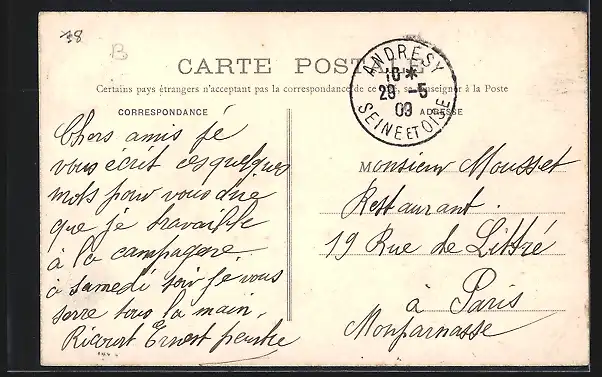 38
B
CARTE POSTALE
Certains pays étrangers n'acceptant pas la correspondance de ce côté, se renseigner à la Poste
CORRESPONDANCE
ADRESSE
ANDRESY
10 *
29 -5
09
SEINE ET OISE
Chers amis jé
vous écrit ces quelques
mots pour vous dire
que jé travaille
à la campagne
à samedi soir jé vous
serre tous la main,
Ricourt Ernest peintre
Monsieur Mousset
Restaurant.
19 Rue de Littré
à Paris
Monparnasse